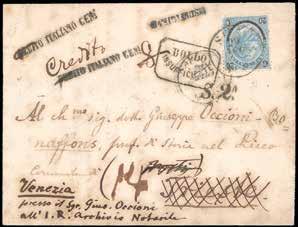 CREDITO ITALIANO CEN.
CREDITO ITALIANO CEN.
Credito
BOLLO
INSUFFICIENTE
S. 2ª
Al ch.mo sig. dott. Giuseppe Occioni-Bo
naffons, prof. di Storia nel Liceo
Venezia
presso il Sgr. Gius. Occioni
all' I. R. Archivio Notarile